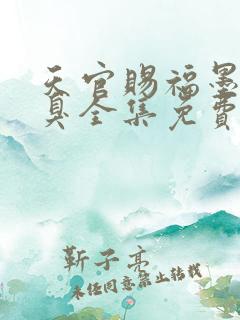 天官赐福墨
真全集免费
靳子亮
未经同意禁止转载